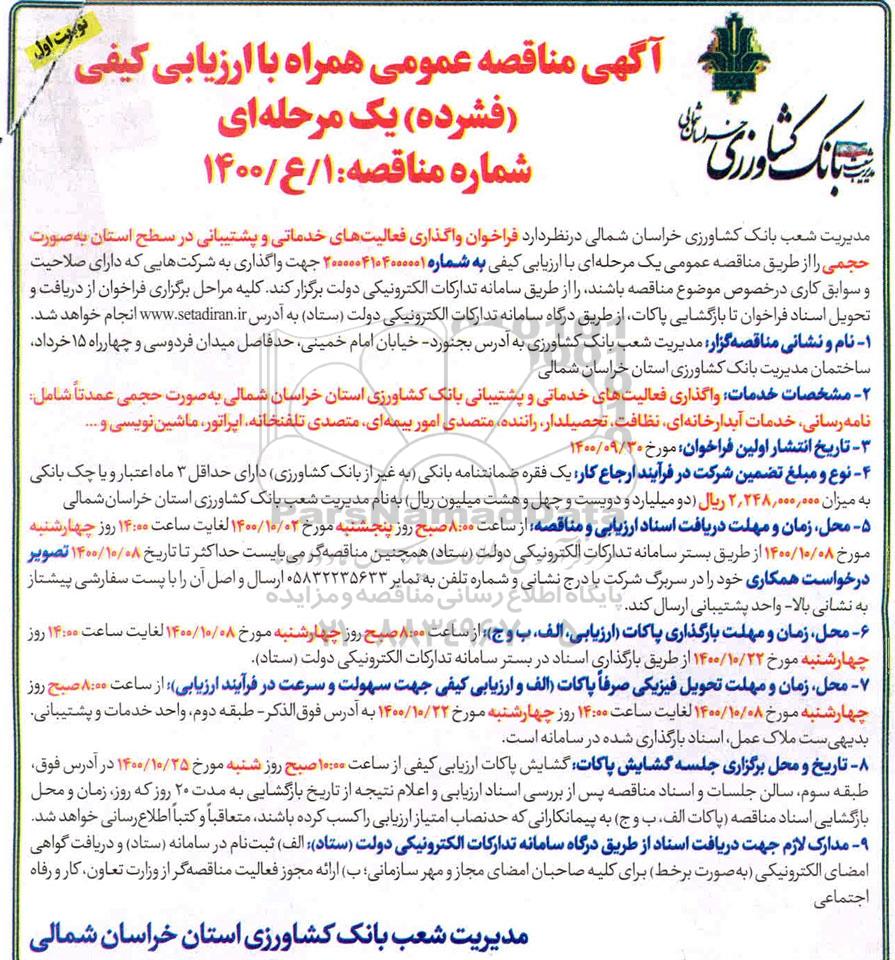 نوبت اول
آگهی مناقصه عمومی همراه با ارزیابی کیفی
(فشرده) یک مرحله‌ای
شماره مناقصه: ۱/ع/۱۴۰۰
بانک کشاورزی
مدیریت شعب
خراسان شمالی
مدیریت شعب بانک کشاورزی خراسان شمالی درنظردارد فراخوان واگذاری فعالیت‌های خدماتی و پشتیبانی در سطح استان به‌صورت
حجمی را از طریق مناقصه عمومی یک مرحله‌ای با ارزیابی کیفی به شماره ۲۰۰۰۰۰۴۱۰۴۰۰۰۰۰۱ جهت واگذاری به شرکت‌هایی که دارای صلاحیت
و سوابق کاری درخصوص موضوع مناقصه باشند، را از طریق سامانه تدارکات الکترونیکی دولت برگزار کند. کلیه مراحل برگزاری فراخوان از دریافت و
تحویل اسناد فراخوان تا بازگشایی پاکات، از طریق درگاه سامانه تدارکات الکترونیکی دولت (ستاد) به آدرس www.setadiran.ir انجام خواهد شد.
۱- نام و نشانی مناقصه‌گزار: مدیریت شعب بانک کشاورزی به آدرس بجنورد- خیابان امام خمینی، حدفاصل میدان فردوسی و چهارراه ۱۵خرداد،
ساختمان مدیریت بانک کشاورزی استان خراسان شمالی
۲- مشخصات خدمات: واگذاری فعالیت‌های خدماتی و پشتیبانی بانک کشاورزی استان خراسان شمالی به‌صورت حجمی عمدتاً شامل:
نامه‌رسانی، خدمات آبدارخانه‌ای، نظافت، تحصیلدار، راننده، متصدی امور بیمه‌ای، متصدی تلفنخانه، اپراتور، ماشین‌نویسی و ...
۳- تاریخ انتشار اولین فراخوان: مورخ ۱۴۰۰/۰۹/۳۰
۴- نوع و مبلغ تضمین شرکت در فرآیند ارجاع کار: یک فقره ضمانتنامه بانکی (به غیر از بانک کشاورزی) دارای حداقل ۳ ماه اعتبار و یا چک بانکی
به میزان ۲,۲۴۸,۰۰۰,۰۰۰ ریال (دو میلیارد و دویست و چهل و هشت میلیون ریال) به‌نام مدیریت شعب بانک کشاورزی استان خراسان‌شمالی
۵- محل، زمان و مهلت دریافت اسناد ارزیابی و مناقصه: از ساعت ۸:۰۰ صبح روز پنجشنبه مورخ ۱۴۰۰/۱۰/۰۲ لغایت ساعت ۱۴:۰۰ روز چهارشنبه
مورخ ۱۴۰۰/۱۰/۰۸ از طریق بستر سامانه تدارکات الکترونیکی دولت (ستاد) همچنین مناقصه‌گر می‌بایست حداکثر تا تاریخ ۱۴۰۰/۱۰/۰۸ تصویر
درخواست همکاری خود را در سربرگ شرکت با درج نشانی و شماره تلفن به نمابر ۰۵۸۳۲۲۳۵۶۳۳ ارسال و اصل آن را با پست سفارشی پیشتاز
به نشانی بالا- واحد پشتیبانی ارسال کند.
۶- محل، زمان و مهلت بارگذاری پاکات (ارزیابی، الف، ب و ج): از ساعت ۸:۰۰ صبح روز چهارشنبه مورخ ۱۴۰۰/۱۰/۰۸ لغایت ساعت ۱۴:۰۰ روز
چهارشنبه مورخ ۱۴۰۰/۱۰/۲۲ از طریق بارگذاری اسناد در بستر سامانه تدارکات الکترونیکی دولت (ستاد).
۷- محل، زمان و مهلت تحویل فیزیکی صرفاً پاکات (الف و ارزیابی کیفی جهت سهولت و سرعت در فرآیند ارزیابی): از ساعت ۸:۰۰ صبح روز
چهارشنبه مورخ ۱۴۰۰/۱۰/۰۸ لغایت ساعت ۱۴:۰۰ روز چهارشنبه مورخ ۱۴۰۰/۱۰/۲۲ به آدرس فوق‌الذکر- طبقه دوم، واحد خدمات و پشتیبانی.
بدیهی‌ست ملاک عمل، اسناد بارگذاری شده در سامانه است.
۸- تاریخ و محل برگزاری جلسه گشایش پاکات: گشایش پاکات ارزیابی کیفی از ساعت ۱۰:۰۰ صبح روز شنبه مورخ ۱۴۰۰/۱۰/۲۵ در آدرس فوق،
طبقه سوم، سالن جلسات و اسناد مناقصه پس از بررسی اسناد ارزیابی و اعلام نتیجه از تاریخ بازگشایی به مدت ۲۰ روز که روز، زمان و محل
بازگشایی اسناد مناقصه (پاکات الف، ب و ج) به پیمانکارانی که حدنصاب امتیاز ارزیابی را کسب کرده باشند، متعاقباً و کتباً اطلاع‌رسانی خواهد شد.
۹- مدارک لازم جهت دریافت اسناد از طریق درگاه سامانه تدارکات الکترونیکی دولت (ستاد): الف) ثبت‌نام در سامانه (ستاد) و دریافت گواهی
امضای الکترونیکی (به‌صورت برخط) برای کلیه صاحبان امضای مجاز و مهر سازمانی؛ ب) ارائه مجوز فعالیت مناقصه‌گر از وزارت تعاون، کار و رفاه
اجتماعی
مدیریت شعب بانک کشاورزی استان خراسان شمالی
ParsNamadData
پایگاه اطلاع رسانی مناقصه و مزایده